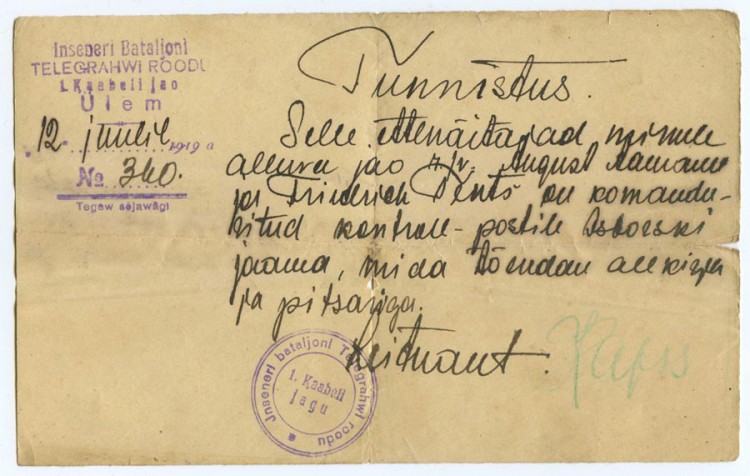 Inseneri Bataljoni
TELEGRAHWI ROODU
1. Kaabeli jao
Ülem
12. juulil 1919 a
No 340.
Tegew sõjawägi
Tunnistus.
Selle ettenäitajad minule
alluva jao August
ja Friedrich on komandee-
ritud kontroll-postile Isborski
jaama, mida tõendan allkirja
ja pitsatiga.
Leitnant.
Inseneri bataljoni Telegrahwi roodu
1. Kaabeli
jagu